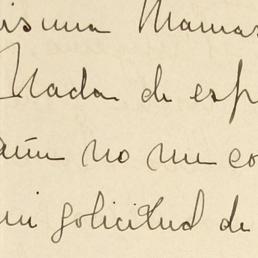 isima Mamas
Nada de esp
aún no me co
mi solicitud de